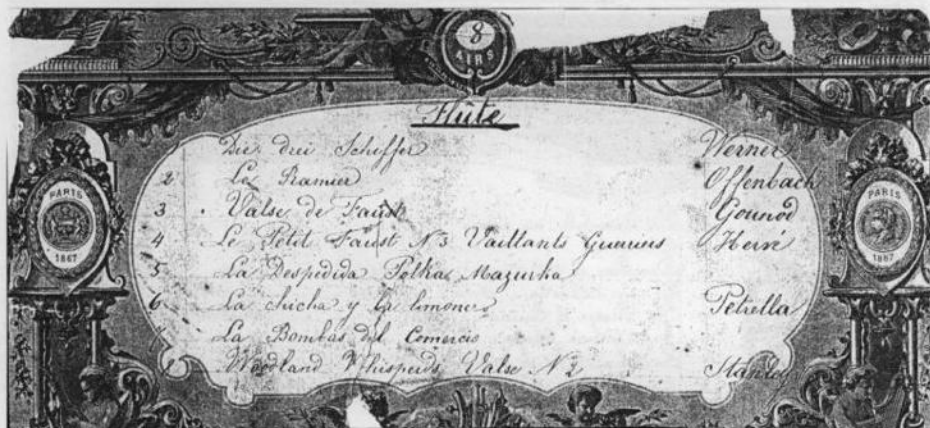 8
AIRS
Flûte
Die drei Schiffer Werner
2 Le Ramier Offenbach
3 Valse de Faust Gounod
4 Le Petit Faust N3 Vaillants Guerriers Hervé
5 La Despedida Polka Mazurka
6 La chicha y la limone Petrella
La Bombas del Comercio
Woodland Whispers Valse N2
PARIS
1867
PARIS
1867